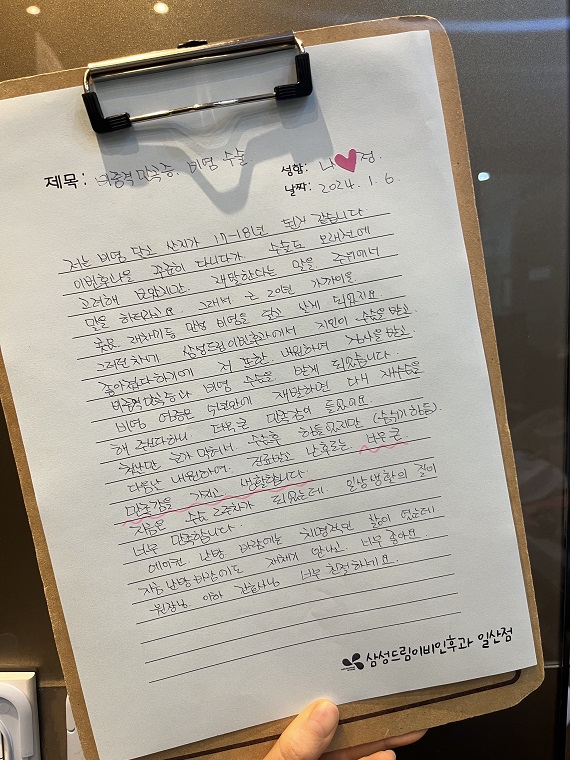 제목: 비중격만곡증. 비염 수술
성함: 나♥정.
날짜: 2024. 1. 6.
저는 비염 달고 산지가 17~18년 된거 같습니다
이비인후과를 꾸준히 다니다가 수술도 오래전에
고려해 보았지만. 재발한다는 말을 주변에서
많을 하더라고요 그래서 근 20년 가까이를
콧물 재채기등 만성 비염을 달고 살게 되었지요.
그러던 차에 삼성드림이비인후과에서 지인이 수술을 받고.
좋아졌다하기에 저 또한 내원하여 검사을 받고.
비중격만곡증과 비염 수술을 받게 되었습니다
비염 여증은 5년안에 재발하면 다시 재수술을
해 주신다하니 더욱 큰 만족감이 들었어요.
첫날만 코가 막혀서 수술후 힘들었지만 (숨쉬기 힘듬).
다음날 내원하여. 진료받고 난후로는 너무 큰
만족감을 가지고 생활합니다.
지금은 수술 2주차가 되었는데 일상생활의 질이
너무 만족합니다.
에어컨. 난방 바람에는 치명적인 삶이 었는데
지금 난방바람에도 재채기 안나고. 너무 좋아요.
원장님 이하 간호사님 너무 친절하세요.
삼성드림이비인후과 일산점